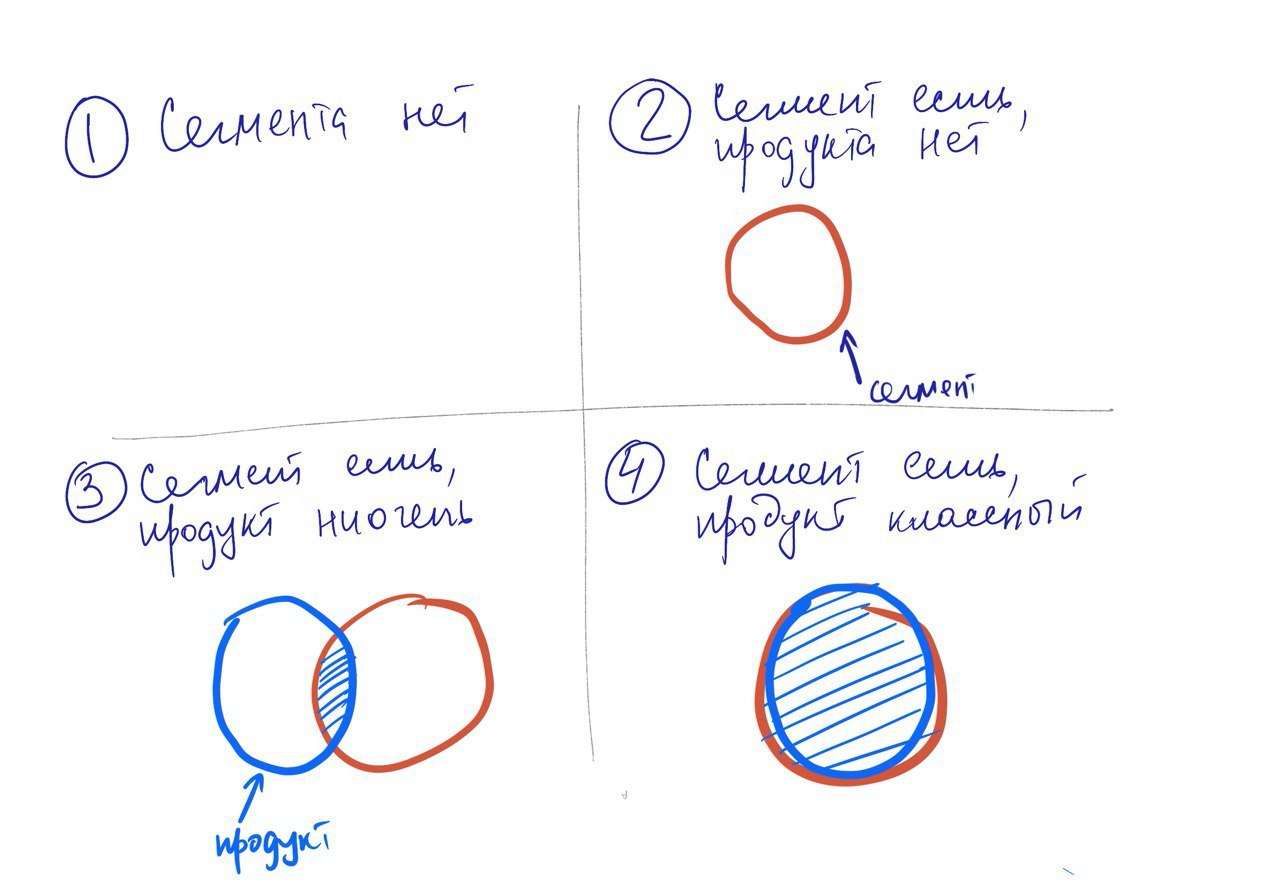 1 Сегмента нет
2 Сегмент есть,
продукта нет
сегмент
3 Сегмент есть,
продукт ниочень
продукт
4 Сегмент есть,
продукт классный